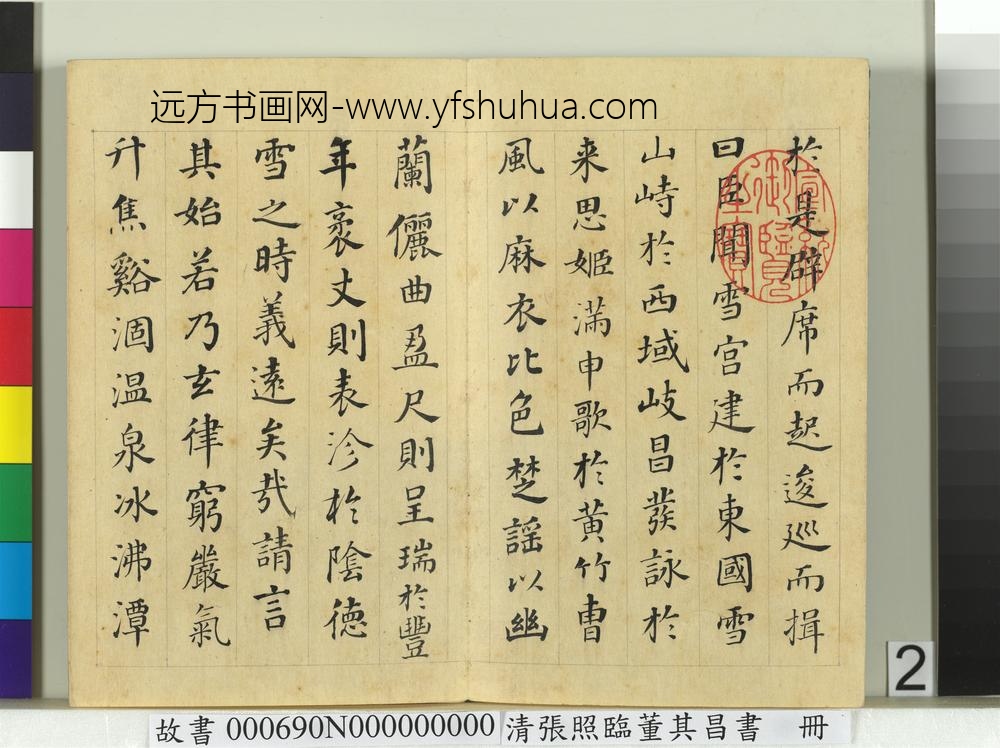 远方书画网-www.yfshuhua.com
於是辟席而起逡巡而揖
曰臣聞雪宮建於東國雪
山峙於西域岐昌發詠於
来思姬滿申歌於黃竹曹
風以麻衣比色楚謡以幽
蘭儷曲盈尺則呈瑞於豐
年袤丈則表沴於陰德
雪之時義遠矣哉請言
其始若乃玄律窮嚴氣
升焦谿涸温泉冰沸潭
2
故書 000690N000000000 清張照臨董其昌書 冊